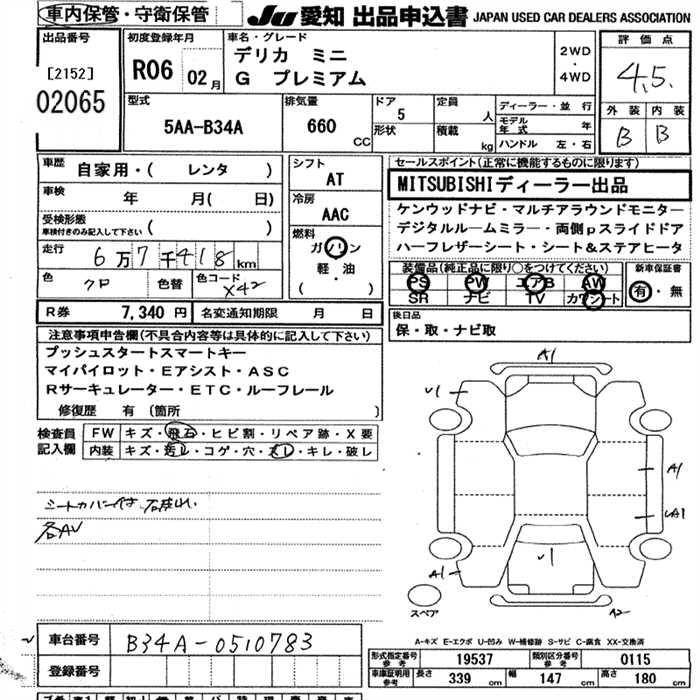 車内保管・守衛保管
JU 愛知 出品申込書 JAPAN USED CAR DEALERS ASSOCIATION
出品番号
[2152]
02065
初度登録年月
R06 02月
車名・グレード
デリカ ミニ
G プレミアム
2WD
・
4WD
評価点
4.5.
外装 内装
B B
型式
5AA-B34A
排気量
660
CC
ドア
5
形状
定員
人
積載
kg
ディーラー・並行
モデル年式 年
ハンドル 左・右
車歴
自家用・( レンタ )
車検
年 月( 日)
受検形態
車検付きのみ記入して下さい ( )
走行
6万7千418km
色
クロ
色替
色コード
X42
シフト
AT
冷房
AAC
燃料
ガソリン
軽・油
( ・ )
R券 7,340 円
名変通知期限 月 日
セールスポイント(正常に機能するものに限ります)
MITSUBISHIディーラー出品
ケンウッドナビ・マルチアラウンドモニター
デジタルルームミラー・両側pスライドドア
ハーフレザーシート・シート&ステアヒータ
装備品(純正品に限り○をつけてください)
PS PW エアB AW
SR ナビ TV カワシート
新車保証書
有・無
後日品
保・取・ナビ取
注意事項申告欄(不具合内容等は具体的に記入して下さい)
プッシュスタートスマートキー
マイパイロット・Eアシスト・ASC
Rサーキュレーター・ETC・ルーフレール
修復歴 有 (箇所 )
検査員
記入欄
FW キズ・飛石・ヒビ割・リペア跡・X要
内装 キズ・汚レ・コゲ・穴・スレ・キレ・破レ
シートカバー付
各AU
A1
√1
A1
UA1
√1
A1
A2
スペア
A-キズ E-エクボ U-凹み W-補修跡 S-サビ C-腐食 XX-交換済
車台番号
B34A-0510783
登録番号
形式指定番号
参考
19537
類別区分番号
参考
0115
車庫証明用
参考
長さ 339 cm 幅 147 cm 高さ 180 cm